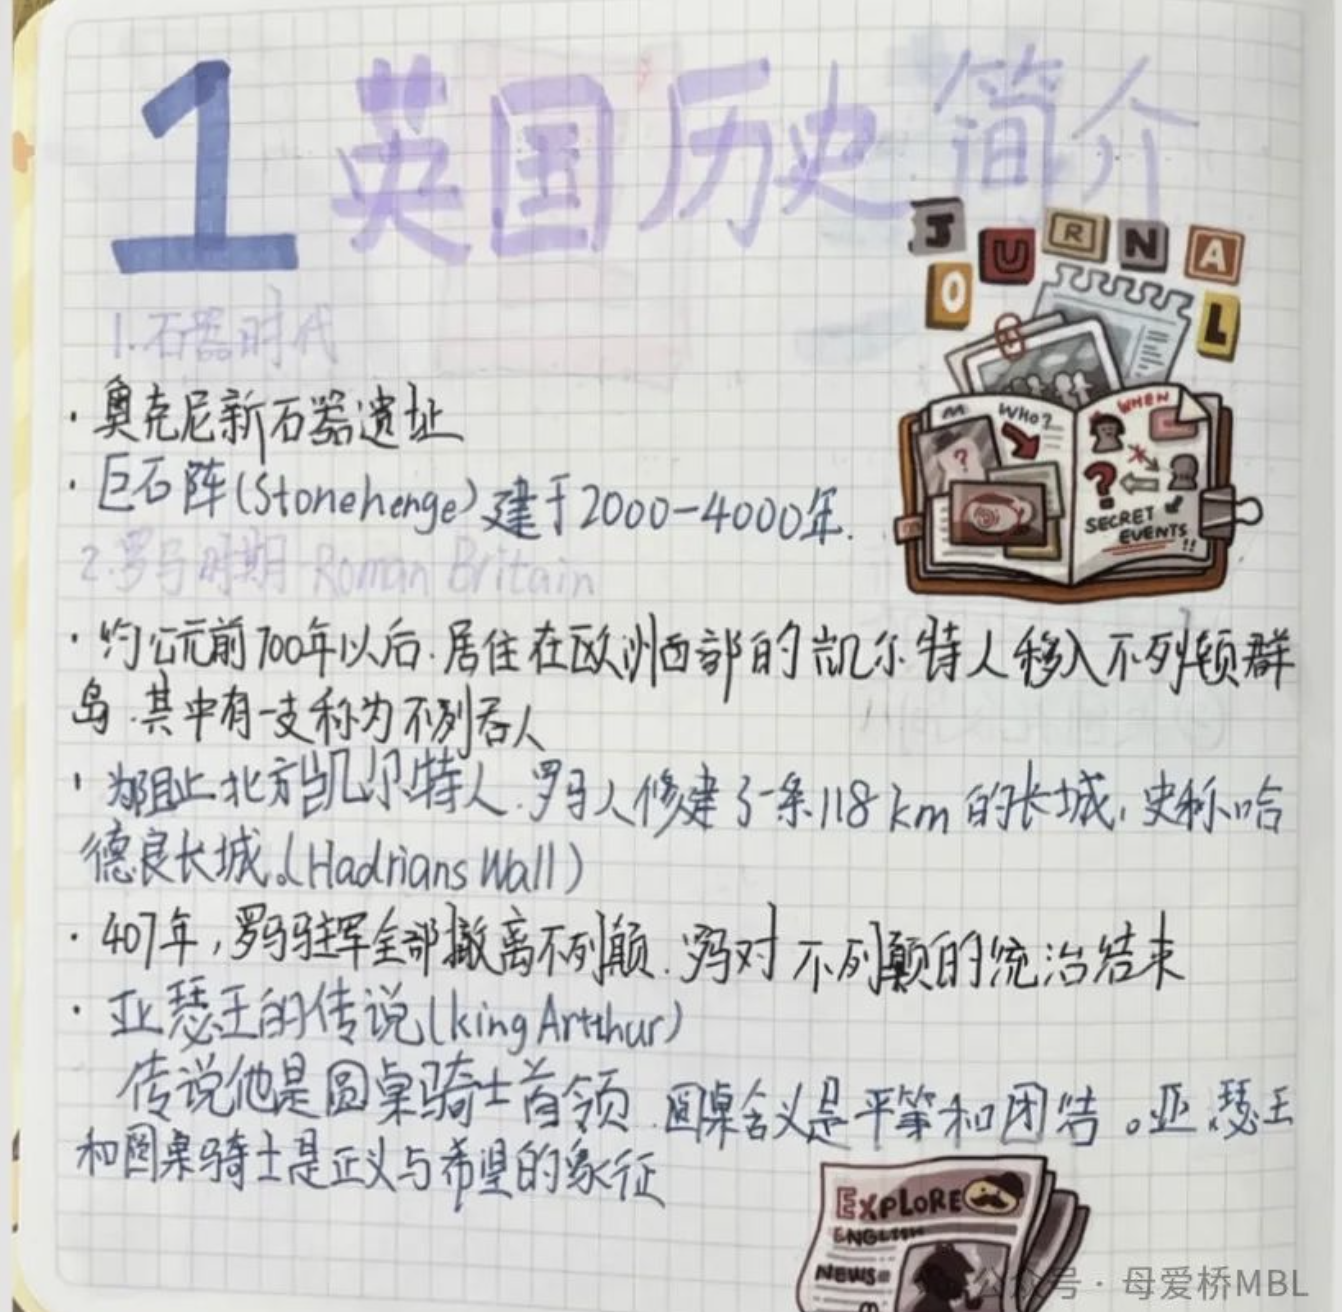 1 英国历史简介
JOURNAL
1.石器时代
·奥克尼新石器遗址
WHO?
WHEN
?
?
SECRET
EVENTS!!
·巨石阵(Stonehenge)建于2000-4000年.
2.罗马时期 Roman Britain
·约公元前700年以后.居住在欧洲西部的凯尔特人移入不列顿群
岛.其中有一支称为不列吞人
·为阻止北方凯尔特人.罗马人修建了一条118km的长城,史称哈
德良长城。(Hadrians Wall)
·407年,罗马驻军全部撤离不列颠.罗马对不列颠的统治结末
·亚瑟王的传说(king Artthur)
传说他是圆桌骑士首领.圆桌含义是平等和团结。亚瑟王
和圆桌骑士是正义与希望的象征
EXPLORE
ENGLISH
NEWS
公众号·母爱桥MBL